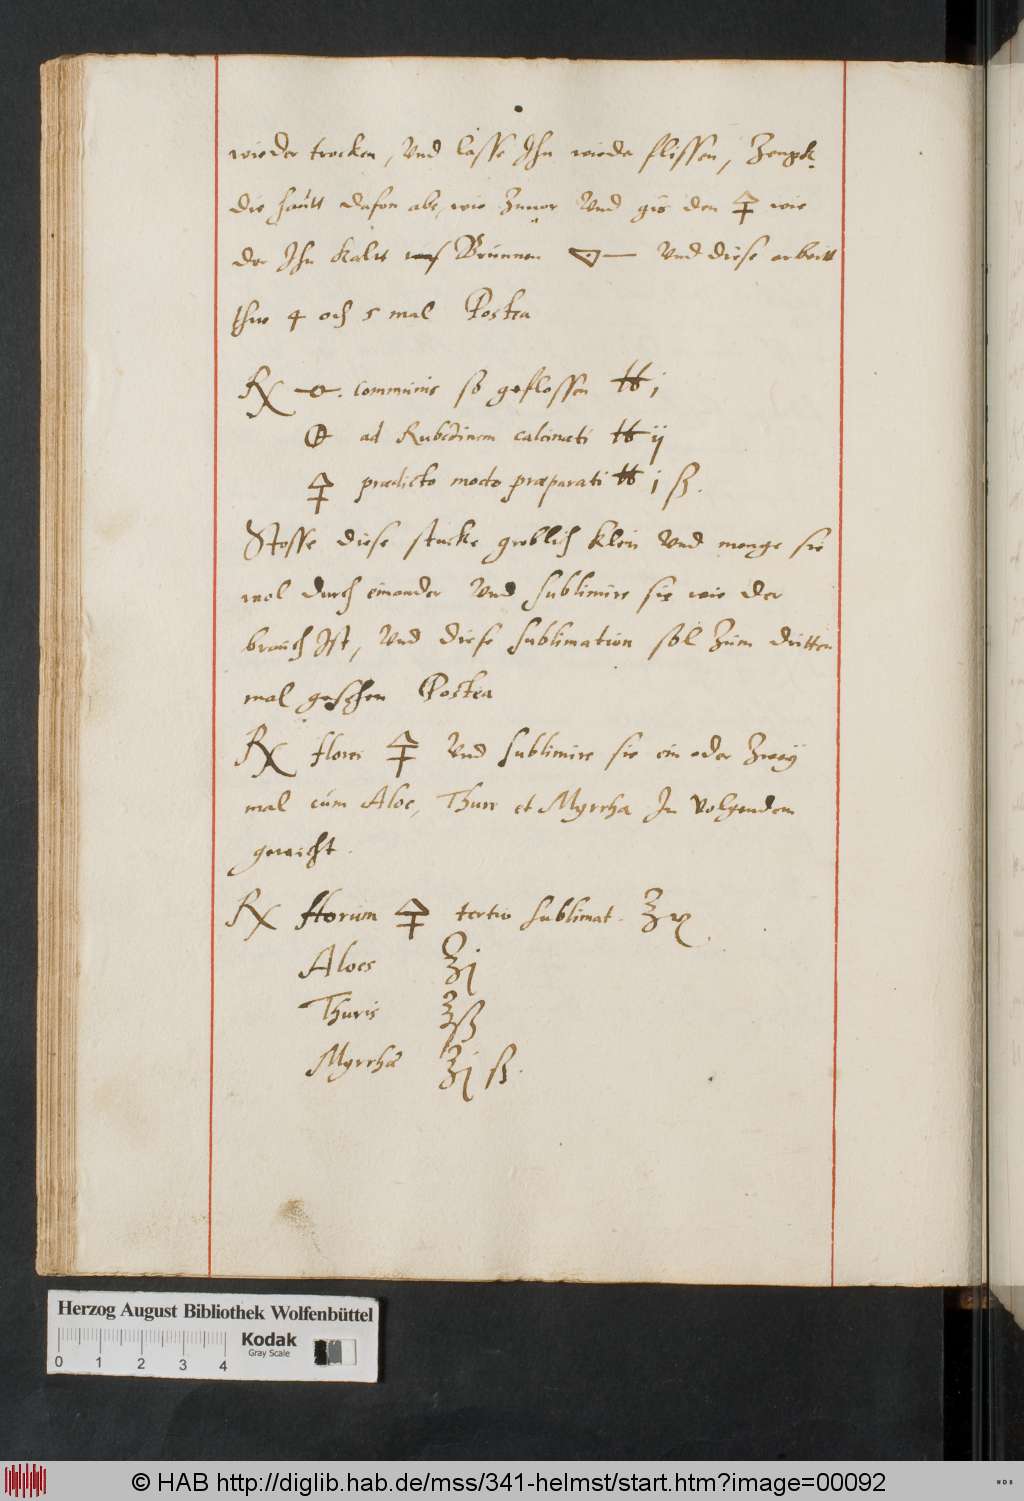 wieder trocken, Vnd lasse Ihn wieder flissen,
die hautt dafon abe, wie Zuuor Vnd gis den 🜍 wie
der Ihn kalt Brunnen 🜄 Vnd diese arbeitt
thue 4 och 5 mal Postea
℞ communis so geflossen ℔ j
ad Rubedinem calcinati ℔ ij
🜍 praedicto modo praeparati ℔ j ß.
Stosse diese stucke groblich klein Vnd menge sie
wol durch einander Vnd sublimire sie wie der
brauch Ist, Vnd diese sublimation sol Zum dritten
mal geschen Postea
℞ flores 🜍 Vnd sublimire sie ein oder Zwey
mal cum Aloe, Thure et Myrrha In Volgendem
gewicht.
℞ florum 🜍 tertio sublimat.
Aloes ℥j
Thuris ℥ß
Myrrhae ℥j ß.
Herzog August Bibliothek Wolfenbüttel
0 1 2 3 4
Kodak
Gray Scale
© HAB http://diglib.hab.de/mss/341-helmst/start.htm?image=00092